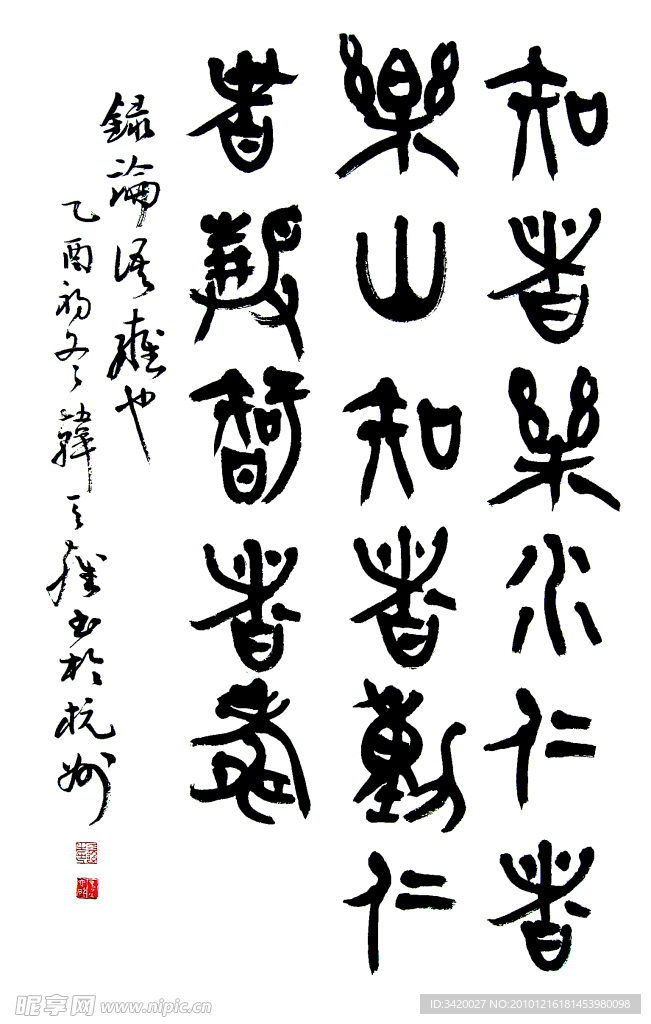 知者樂水仁者
樂山知者動仁
者靜智者壽
錄論語雍也
乙酉初冬韓天雍書於杭州
昵享网 www.nipic.cn
ID:3420027 NO:20101216181453980098